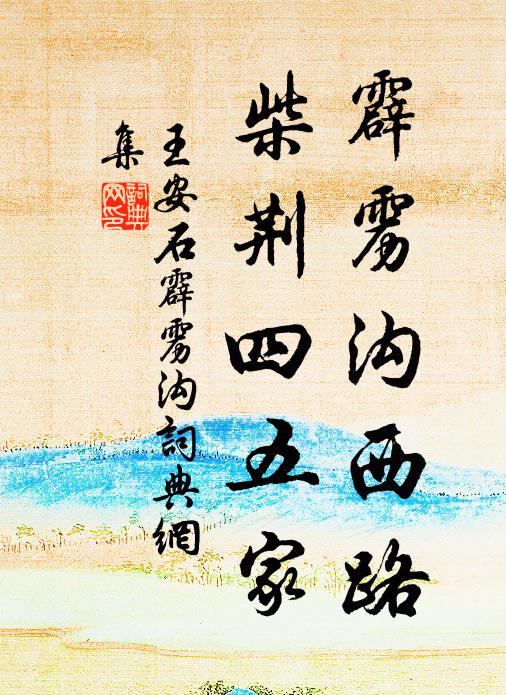 霹雳沟西路
柴荆四五家
王安石霹雳沟詞典網
集
詞典
网印